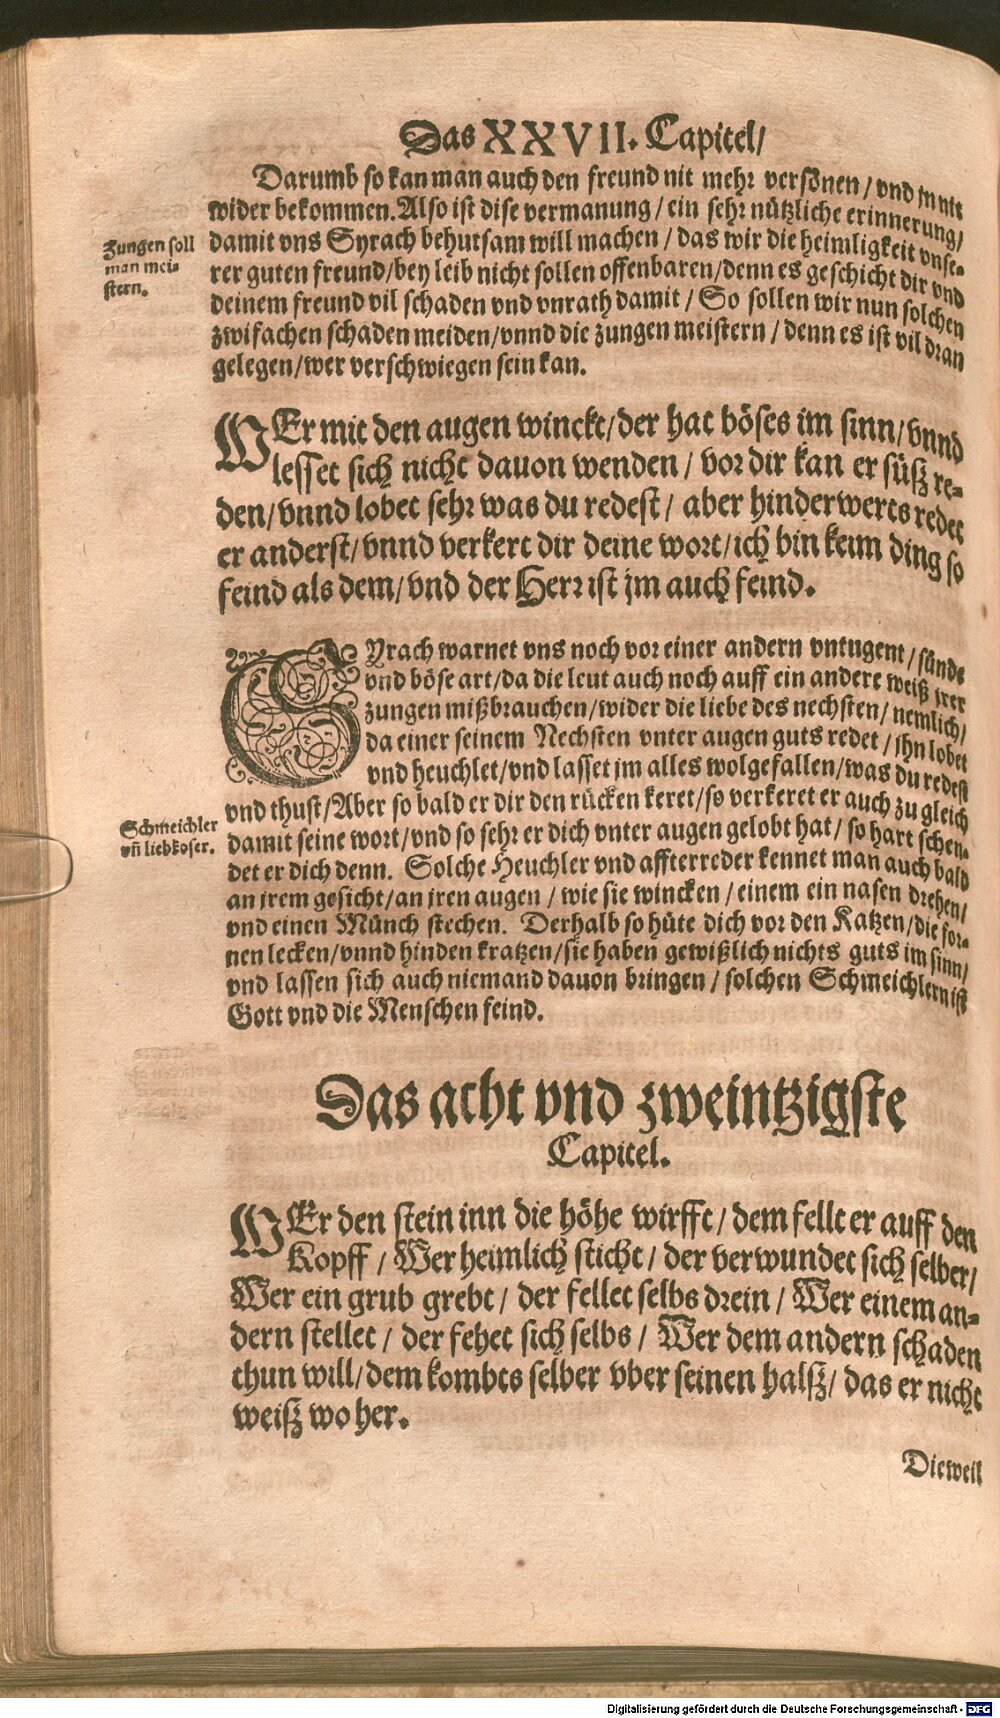 Das XXVII. Capitel/
Darumb so kan man auch den freund nit mehr versönen/ vnd jm nit
wider bekommen. Also ist dise vermanung/ ein sehr nützliche erinnerung/
Zungen soll
man mei-
stern.
damit vns Syrach behutsam will machen/ das wir die heimligkeit vnse-
rer guten freund/ bey leib nicht sollen offenbaren/ denn es geschicht dir vnd
deinem freund vil schaden vnd vnrath damit/ So sollen wir nun solchen
zwifachen schaden meiden/ vnnd die zungen meistern/ denn es ist vil dran
gelegen/ wer verschwiegen sein kan.
WEr mit den augen winckt/ der hat böses im sinn/ vnnd
lesset sich nicht dauon wenden/ vor dir kan er süß re-
den/ vnnd lobet sehr was du redest/ aber hinderwerts redet
er anderst/ vnnd verkert dir deine wort/ ich bin keim ding so
feind als dem/ vnd der Herr ist jm auch feind.
SYrach warnet vns noch vor einer andern vntugent/ sünde
vnd böse art/ da die leut auch noch auff ein andere weiß jrer
zungen mißbrauchen/ wider die liebe des nechsten/ nemlich/
da einer seinem Nechsten vnter augen guts redet/ ihn lobet
vnd heuchlet/ vnd lasset jm alles wolgefallen/ was du redest
vnd thust/ Aber so bald er dir den rücken keret/ so verkeret er auch zu gleich
Schmeichler
vñ liebkoser.
damit seine wort/ vnd so sehr er dich vnter augen gelobt hat/ so hart schen-
det er dich denn. Solche Heuchler vnd affterreder kennet man auch bald
an jrem gesicht/ an jren augen/ wie sie wincken/ einem ein nasen drehen/
vnd einen Münch stechen. Derhalb so hüte dich vor den Katzen/ die for-
nen lecken/ vnnd hinden kratzen/ sie haben gewißlich nichts guts im sinn/
vnd lassen sich auch niemand dauon bringen/ solchen Schmeichlern ist
Gott vnd die Menschen feind.
Das acht vnd zweintzigste
Capitel.
WEr den stein inn die höhe wirfft/ dem fellt er auff den
Kopff/ Wer heimlich sticht/ der verwundet sich selber/
Wer ein grub grebt/ der fellet selbs drein/ Wer einem an-
dern stellet/ der fehet sich selbs/ Wer dem andern schaden
thun will/ dem kombts selber vber seinen halß/ das er nicht
weiß wo her.
Dieweil
Digitalisierung gefördert durch die Deutsche Forschungsgemeinschaft - DFG